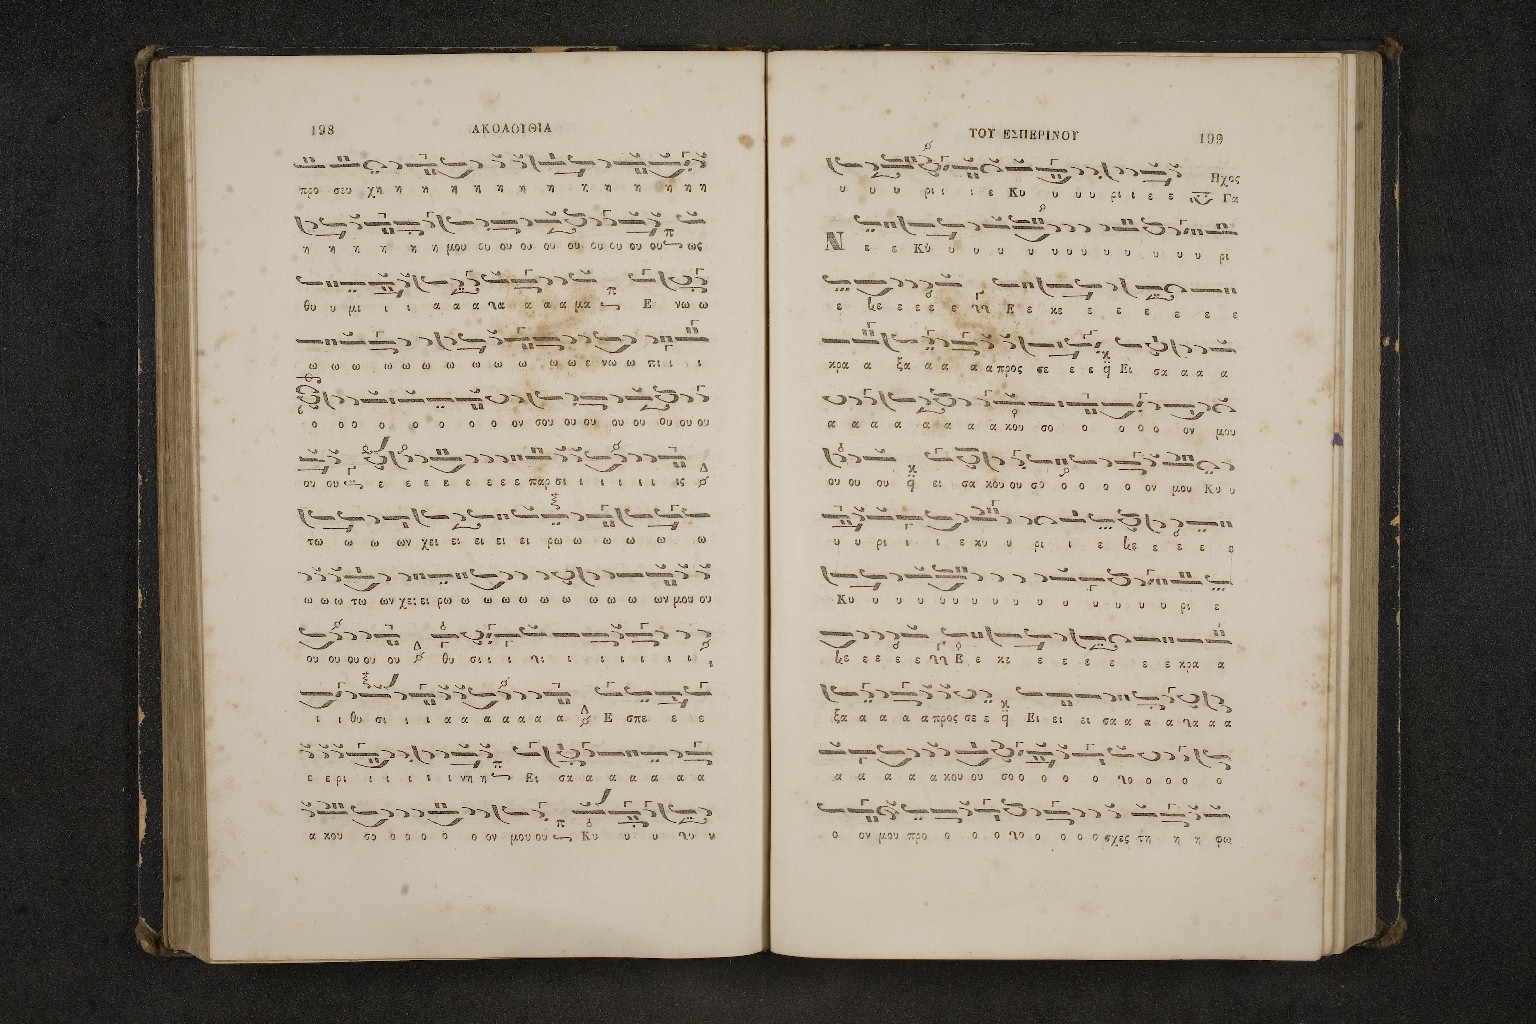 198
ΑΚΟΛΟΥΘΙΑ
προ σευ χη η η η η η η η η η η η
η η η η η η μου ου ου ου ου ου ου ου ου ου ως
θυ υ μι ι ι α α α α α α μα Ε νω ω
ω ω ω ω ω ω ω ω ω ω ω ε νω ω πι ι ι
ο ο ο ο ο ο ο ο ον σου ου ου ου ου ου ου ου
ου ου ε ε ε ε ε ε ε παρ σι ι ι ι ι ι ις
τω ω ω ων χει ει ει ει ει ρω ω ω ω ω ω
ω ω ω τω ων χει ει ρω ω ω ω ω ω ω ω ω ων μου ου
ου ου ου ου ου θυ σι ι ι ι ι ι ι ι ι ι
ι ι θυ σι ι ι α α α α α α α Ε σπε ε ε
ε ε ρι ι ι ι ι ι νη η Ει σα α α α α α α
α κου σο ο ο ο ο ο ον μου ου Κυ υ υ υ
ΤΟΥ ΕΣΠΕΡΙΝΟΥ
199
υ υ υ ρι ι ι ε Κυ υ υ υ ρι ι ε ε Ηχος Γα
Ν ε ε Κυ υ υ υ υ υ υ υ υ υ υ υ υ ρι
ε ε ε ε ε ε Ε ε κε ε ε ε ε ε ε
κρα α ξα α α α α προς σε ε ε Ει σα α α α
α α α α α α α α κου σο ο ο ο ο ον μου
ου ου ου ει σα κου ου σο ο ο ο ο ον μου Κυ υ
υ υ ρι ι ι ε κυ υ ρι ι ε ε ε ε ε
Κυ υ υ υ υ υ υ υ υ υ υ υ υ υ υ ρι ε
ε ε ε ε Ε ε κε ε ε ε ε ε ε κρα α
ξα α α α α προς σε ε Ει ει ει σα α α α α α
α α α α α κου ου σο ο ο ο ο ο ο ο ο
ο ον μου προ ο ο ο ο ο ο ο σχες τη η η φω